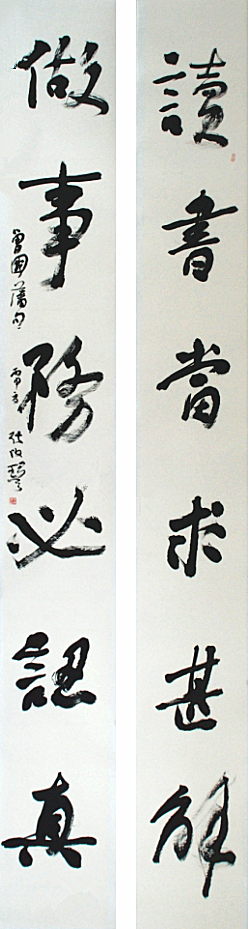 讀書當求甚解
做事務必認真
曾國藩句